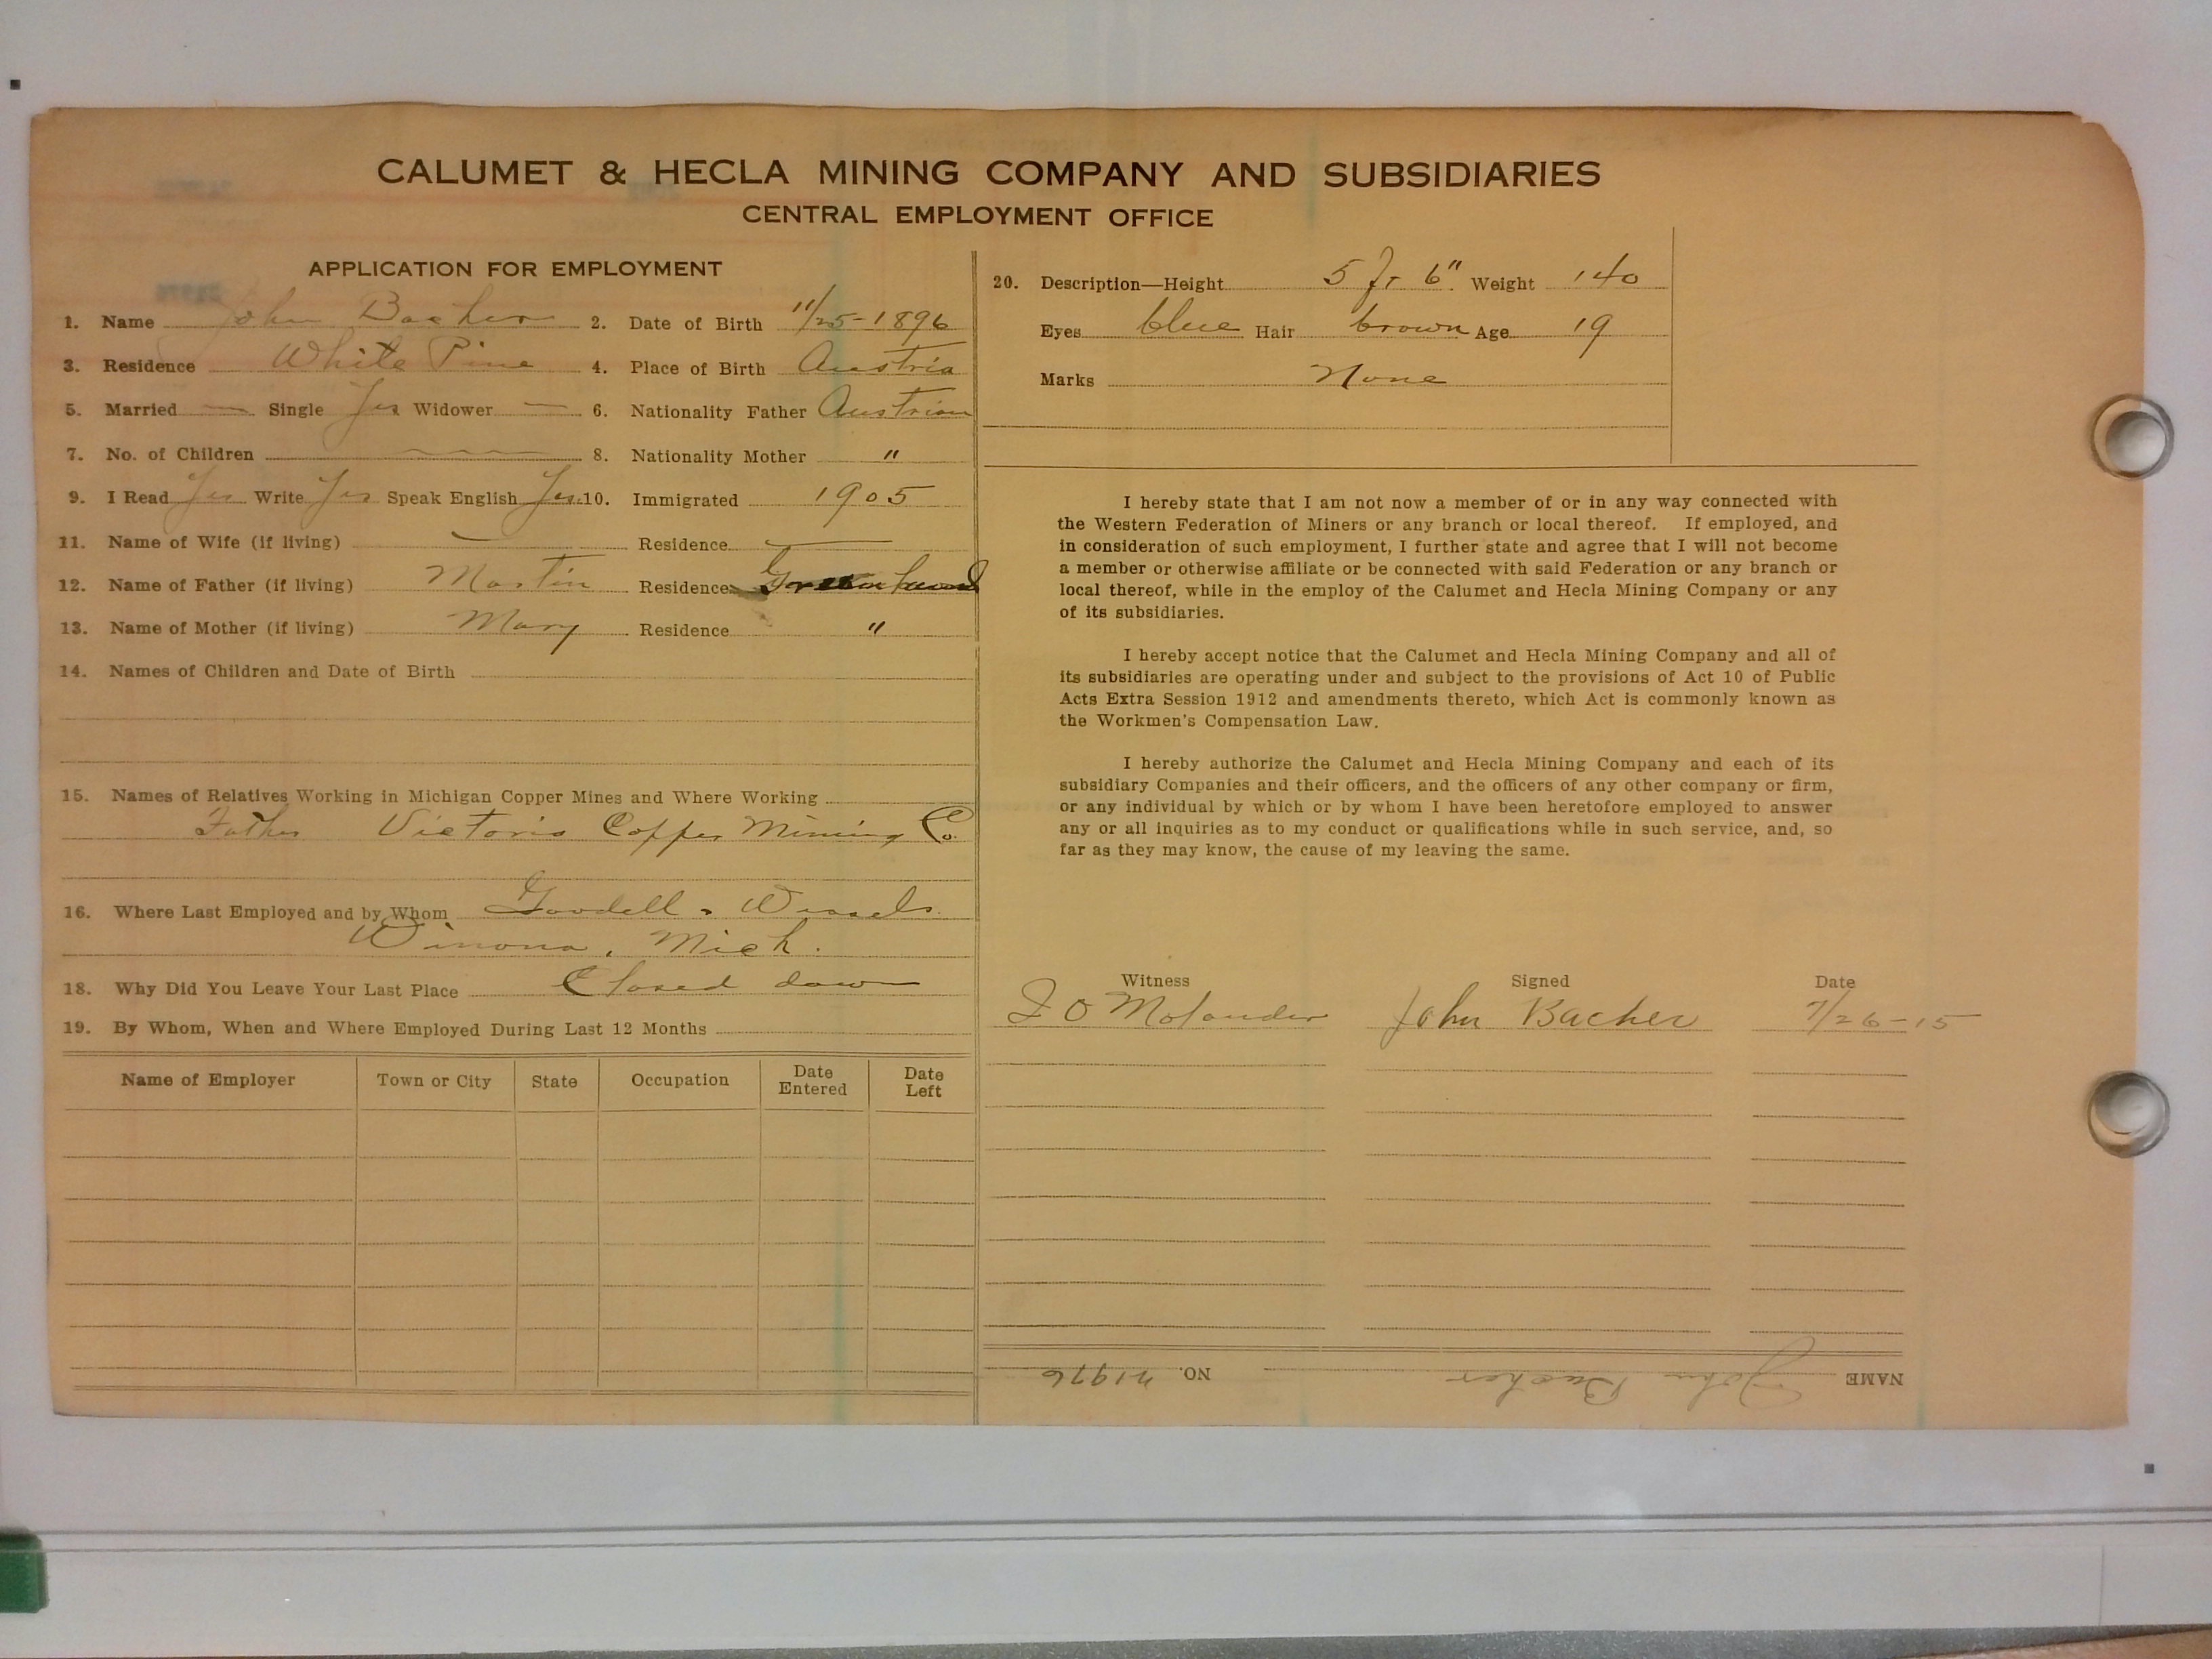 CALUMET & HECLA MINING COMPANY AND SUBSIDIARIES
CENTRAL EMPLOYMENT OFFICE
APPLICATION FOR EMPLOYMENT
1. Name John Bacher 2. Date of Birth 11/25-1896
3. Residence White Pine 4. Place of Birth Austria
5. Married — Single Yes Widower — 6. Nationality Father Austrian
7. No. of Children — 8. Nationality Mother "
9. I Read Yes Write Yes Speak English Yes 10. Immigrated 1905
11. Name of Wife (if living) — Residence —
12. Name of Father (if living) Martin Residence
13. Name of Mother (if living) Mary Residence "
14. Names of Children and Date of Birth
15. Names of Relatives Working in Michigan Copper Mines and Where Working
Father Victoria Copper Mining Co.
16. Where Last Employed and by Whom Goodell
Winona, Mich.
18. Why Did You Leave Your Last Place Closed down
19. By Whom, When and Where Employed During Last 12 Months
Name of Employer Town or City State Occupation Date Entered Date Left
20. Description—Height 5 ft 6" Weight 140
Eyes blue Hair brown Age 19
Marks None
I hereby state that I am not now a member of or in any way connected with
the Western Federation of Miners or any branch or local thereof. If employed, and
in consideration of such employment, I further state and agree that I will not become
a member or otherwise affiliate or be connected with said Federation or any branch or
local thereof, while in the employ of the Calumet and Hecla Mining Company or any
of its subsidiaries.
I hereby accept notice that the Calumet and Hecla Mining Company and all of
its subsidiaries are operating under and subject to the provisions of Act 10 of Public
Acts Extra Session 1912 and amendments thereto, which Act is commonly known as
the Workmen's Compensation Law.
I hereby authorize the Calumet and Hecla Mining Company and each of its
subsidiary Companies and their officers, and the officers of any other company or firm,
or any individual by which or by whom I have been heretofore employed to answer
any or all inquiries as to my conduct or qualifications while in such service, and, so
far as they may know, the cause of my leaving the same.
Witness Signed Date
J O Molander John Bacher 7/26-15
NAME John Bacher NO. 21976